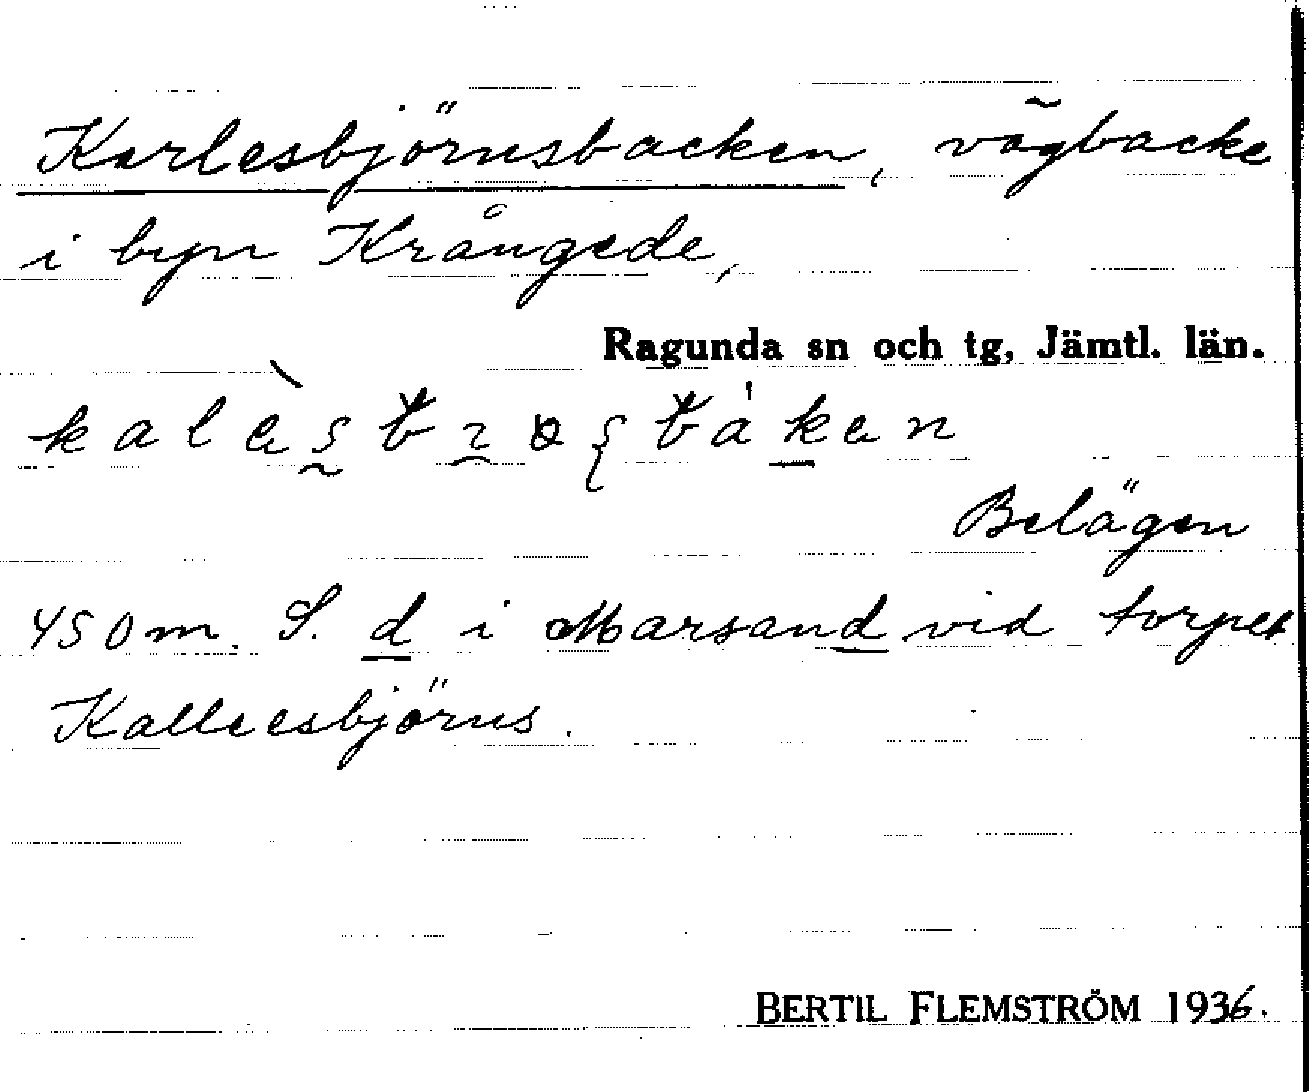 Karlesbjörnsbacken, vägbacke
i byn Krångede,
Ragunda sn och tg, Jämtl. län.
Belägen
450 m. S. d i Marsand vid torpet
Kalleesbjörns.
BERTIL FLEMSTRÖM 1936.